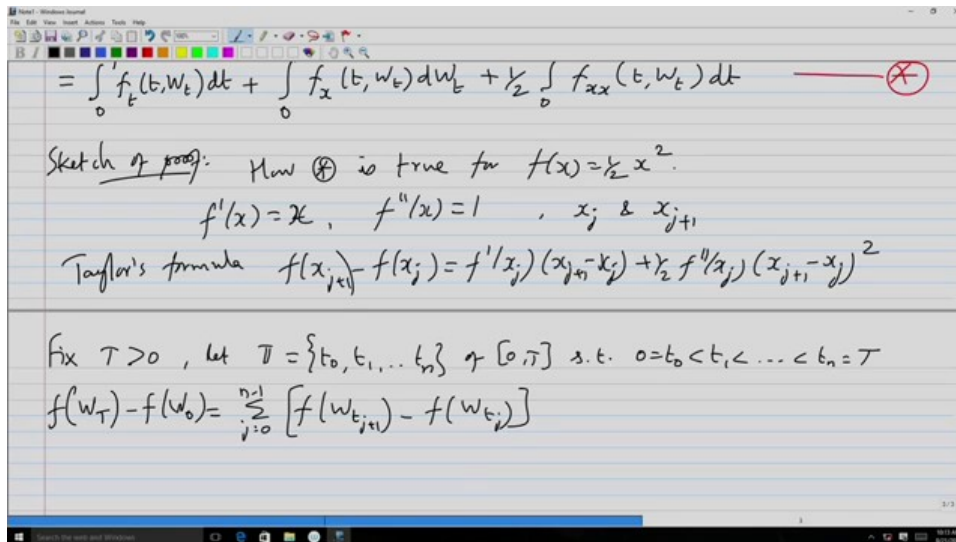 Note1 - Windows Journal
File Edit View Insert Actions Tools Help
B I
= ∫₀' f_t(t,W_t)dt + ∫₀ f_x(t,W_t)dW_t + 1/2 ∫₀ f_xx(t,W_t)dt ——— (*)
Sketch of proof: How (*) is true for f(x) = 1/2 x².
f'(x) = x, f''(x) = 1 , x_j & x_{j+1}
Taylor's formula f(x_{j+1}) - f(x_j) = f'(x_j)(x_{j+1} - x_j) + 1/2 f''(x_j)(x_{j+1} - x_j)²
Fix T>0, let Π = {t₀, t₁, .. t_n} of [0,T] s.t. 0=t₀<t₁<...<t_n=T
f(W_T) - f(W₀) = Σ_{j=0}^{n-1} [f(W_{t_{j+1}}) - f(W_{t_j})]
Search the web and Windows